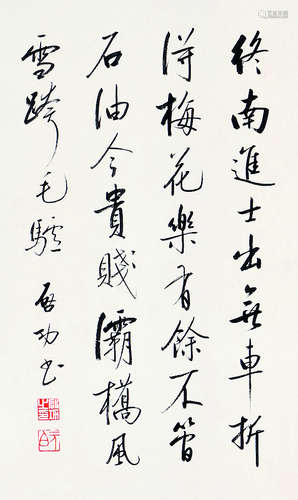 終南進士出無車折
得梅花樂有餘不管
石油今貴賤灞橋風
雪跨毛驢 啓功书